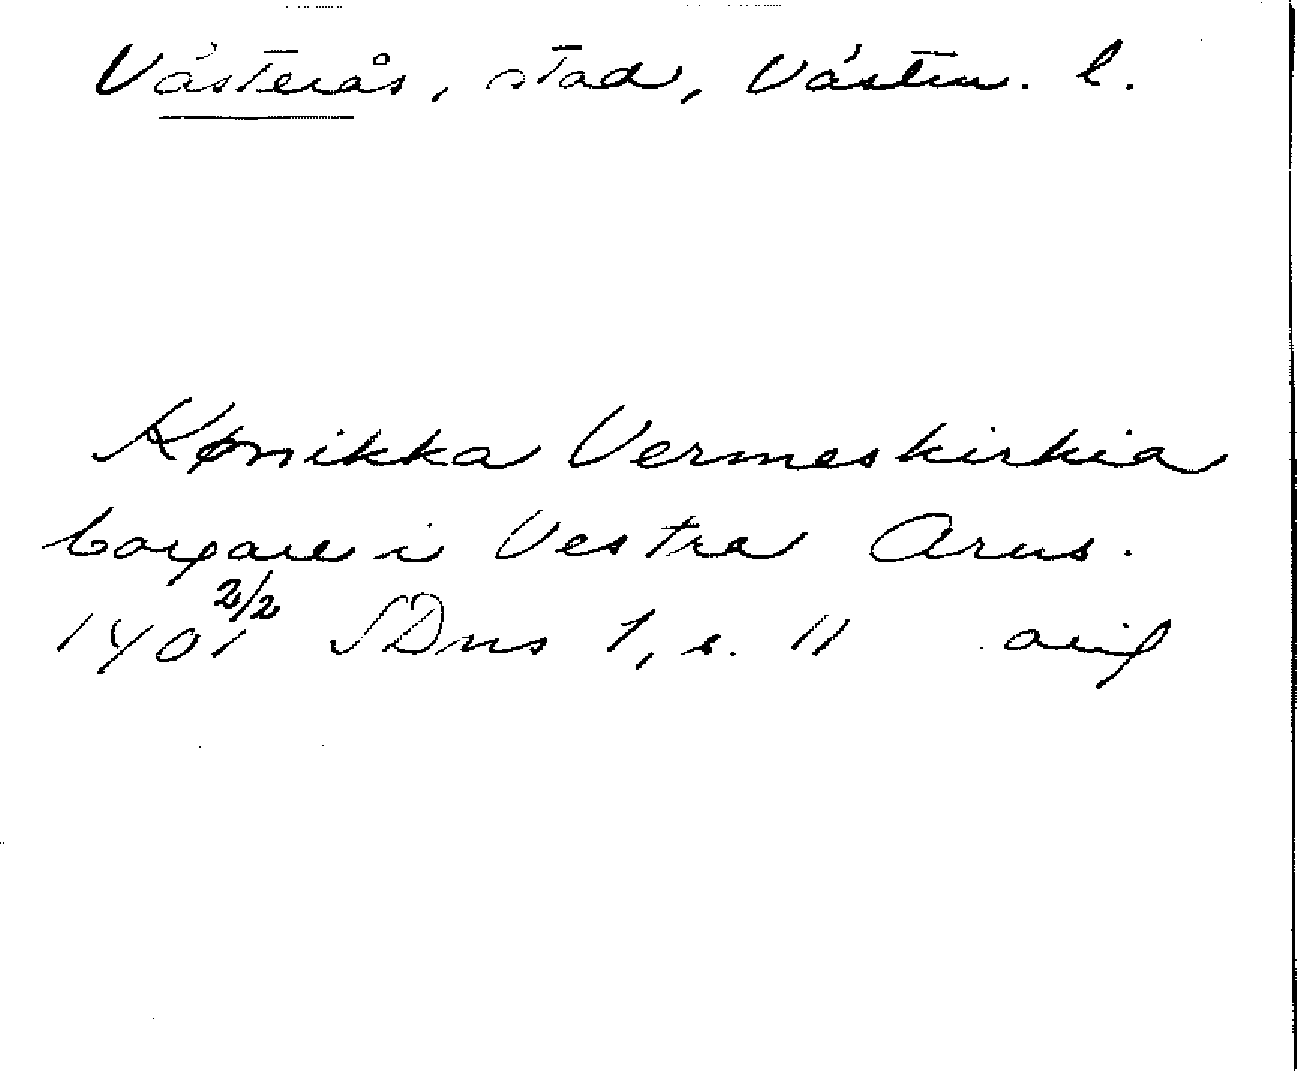 Västerås, stad, Västm. l.
Kønikka Vermeskirkia
borgare i Vestra Arus.
1401 2/2 SDns 1, s. 11 orig